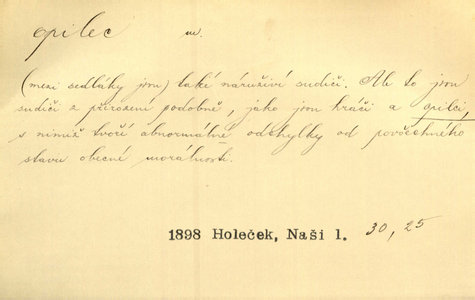 opilec m.
(mezi sedláky jsou) také náruživí sudiči. Ale to jsou
sudiči z přirození podobně, jako jsou hráči a opilci,
s nimiž tvoří abnormálné odchylky od povšechného
stavu obecné morálnosti.
1898 Holeček, Naši 1. 30, 25